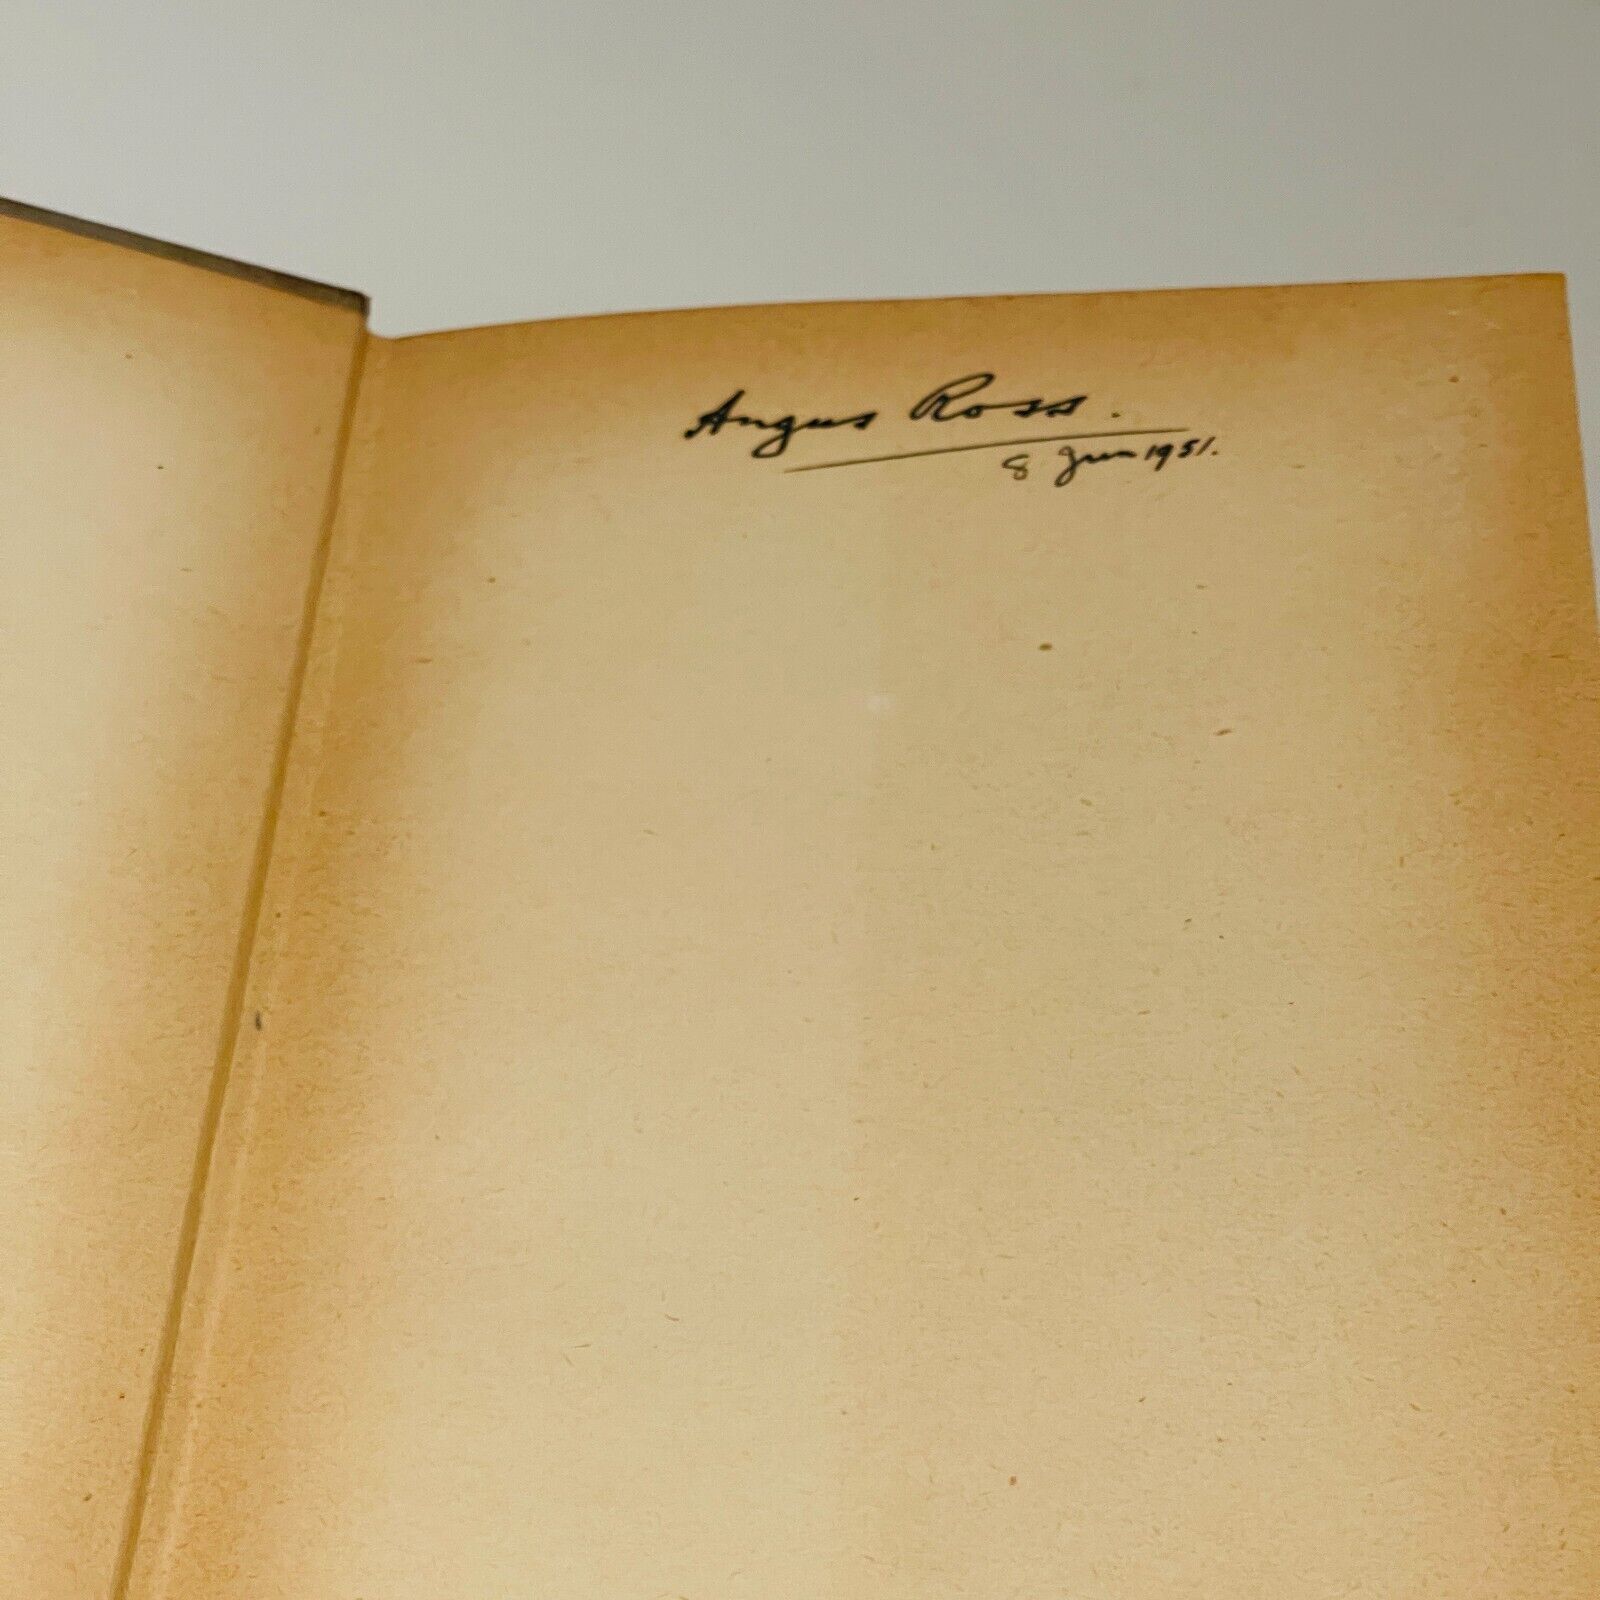 Angus Ross.
8 Jun 1951.